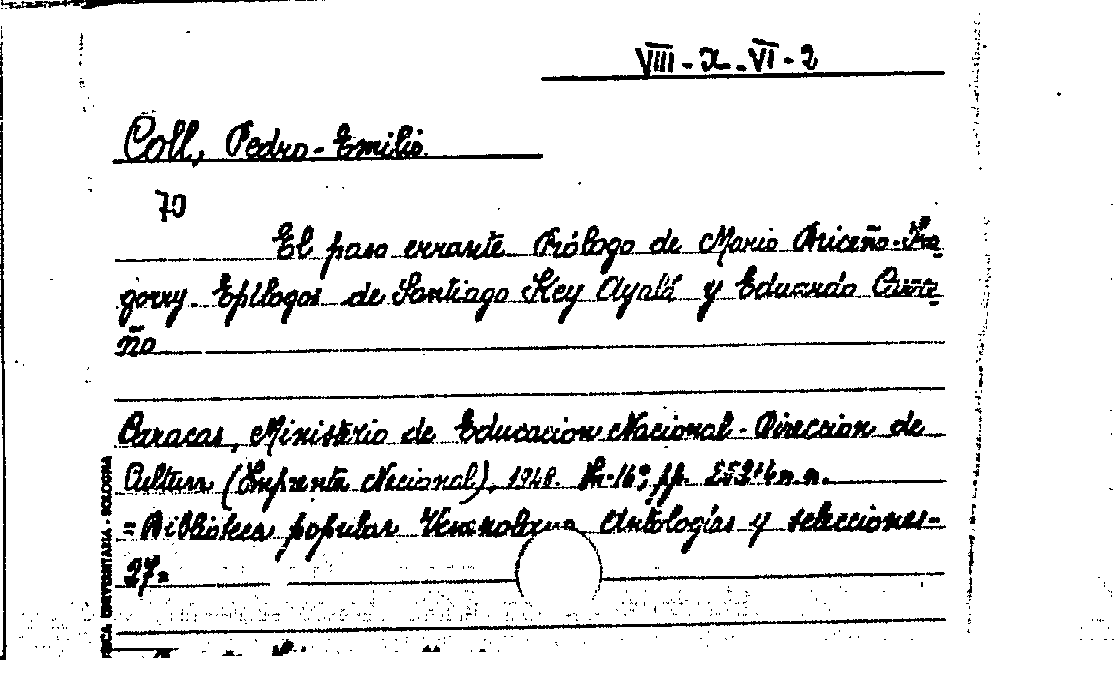 VIII-X-VI-2
Coll, Pedro-Emilio
70
El paso errante. Prólogo de Mario Briceño-Ira-
gorry. Epílogos de Santiago Key Ayalá y Eduardo Carre-
ño
Caracas, Ministerio de Educacion Nacional-Direccion de
Cultura (Imprenta Nacional), 1948. In-16°, pp. 252+4 n.n.
=Biblioteca popular Venezolana Antologías y selecciones-
27=
UNIVERSITARIA - BOLOGNA